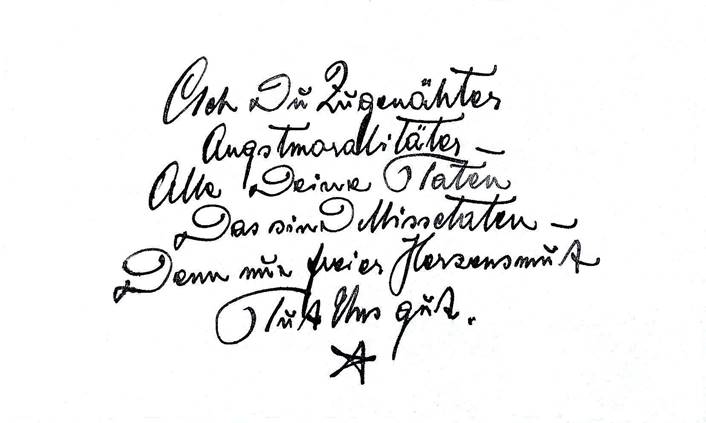 Ach Du Zugenähter
Angstmoralitäter –
Alle Deine Taten
Das sind Missetaten –
Denn nur freier Herzensmut
Tut Uns gut.